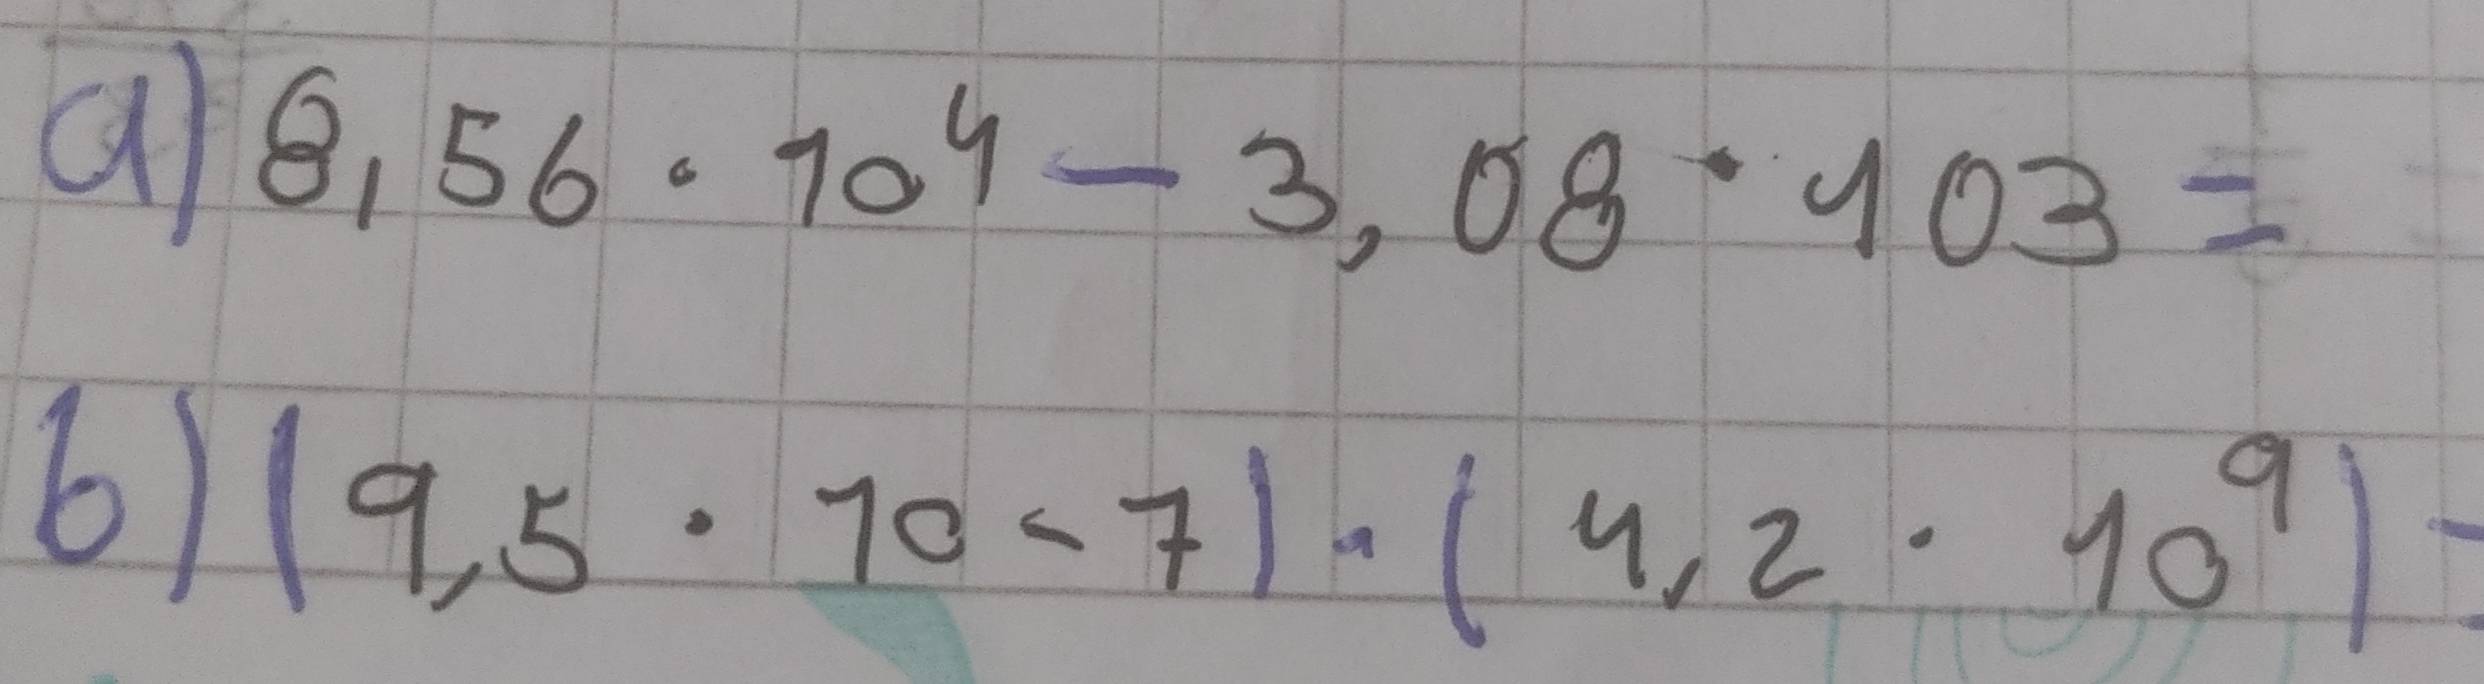 a) 8,56 · 10⁴ - 3,08 · 103 =
b) (9,5 · 10 - 7) · (4,2 · 10⁹) =